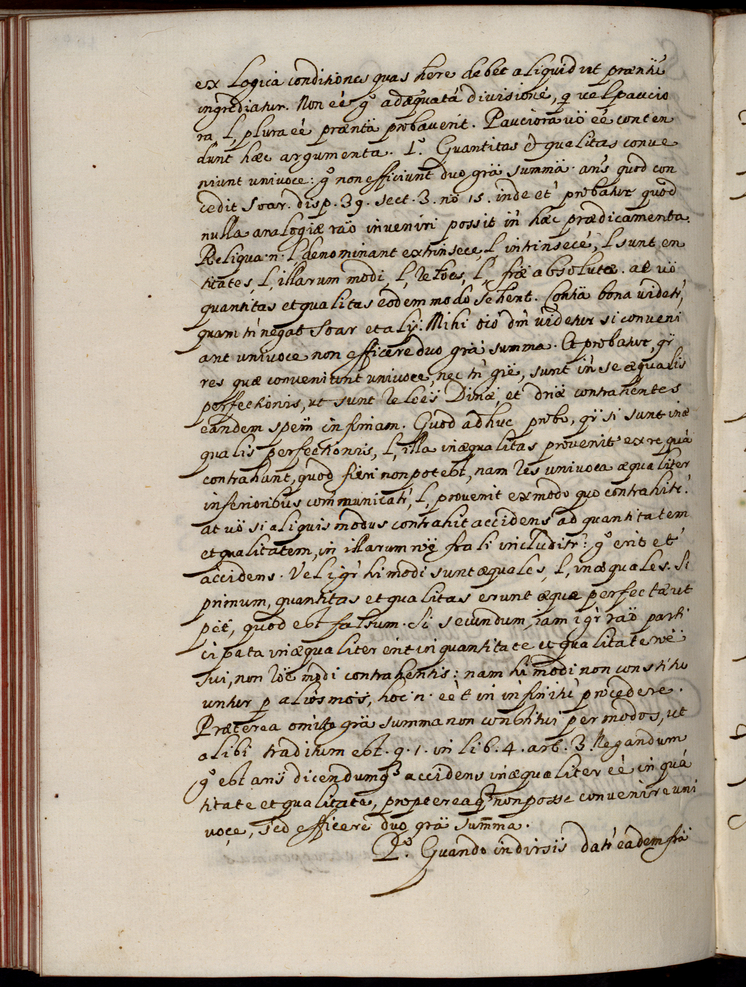 ex Logica conditiones quas here debet aliquid ut prænti
ingrediatur. Non eé gº adæquatá divisioné, q vel paucio
ra l, plura eé præntä probaverit. Pauciora vö eé conten
dunt hæc argumenta. 1º. Quantitas et qualitas conve
niunt univoce: gº non efficiunt duo grä summä. ans quod con
cedit Soar. disp. 39. sect. 3. nº 15. inde et probatur quod
nulla analogiæ raö inveniri possit in hæc prædicamenta.
Reliqua. n. l, denominant extrinsece, l, intrinsecé, l, sunt en
titates, l, illarum modi, l, l, absolutæ. at vö
quantitas et qualitas eodem modo se hent. bona videtr,
quam tn negat Soar et alÿ. Mihi dm videtur si conveni
ant univoce non efficere duo grä summa. Et probatur, qr
res quæ conveniunt univoce, nec tn sunt in se æqualis
perfectionis, ut sunt et driä contrahentes
eandem speïn infimam. Quod adhuc prbo, qr si sunt inæ
qualis perfectionis, l, illa inæqualitas provenit ex re quá
contrahunt, quod fieri non potest, nam res univoca æqualiter
inferioribus communicatr, l, provenit ex modo quo contrahitr.
at vö si aliquis modus contrahit accidens ad quantitatem
et qualitatem, in illarum li includitr: gº erit et
accidens. Vel igr hi modi sunt æquales, l, inæquales. Si
primum, quantitas et qualitas erunt æque perfectæ ut
pët, quod est falsum. Si secundum, jam igr raö parti
cipata inæqualiter erit in quantitate et qualitate
sui, non modi contrahentis: nam hi modi non constitu
untur p aliós mös, hoc. n. eét in infinitü prócedere.
Præterea omitto grä summa non constitui per modos, ut
alibi traditum est. q. 1. in lib. 4. art. 3. Negandum
gº est ans dicendumq accidens inæqualiter eé in quá
titate et qualitate, proptereaq non posse convenire uni
voce, sed efficere duo grä sum̄a.
2º. Quando in datr eadem